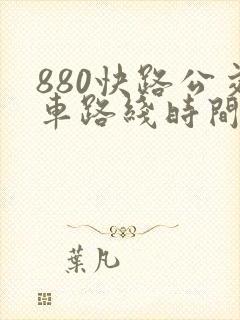 880快路公交
車路綫時間
葉凡